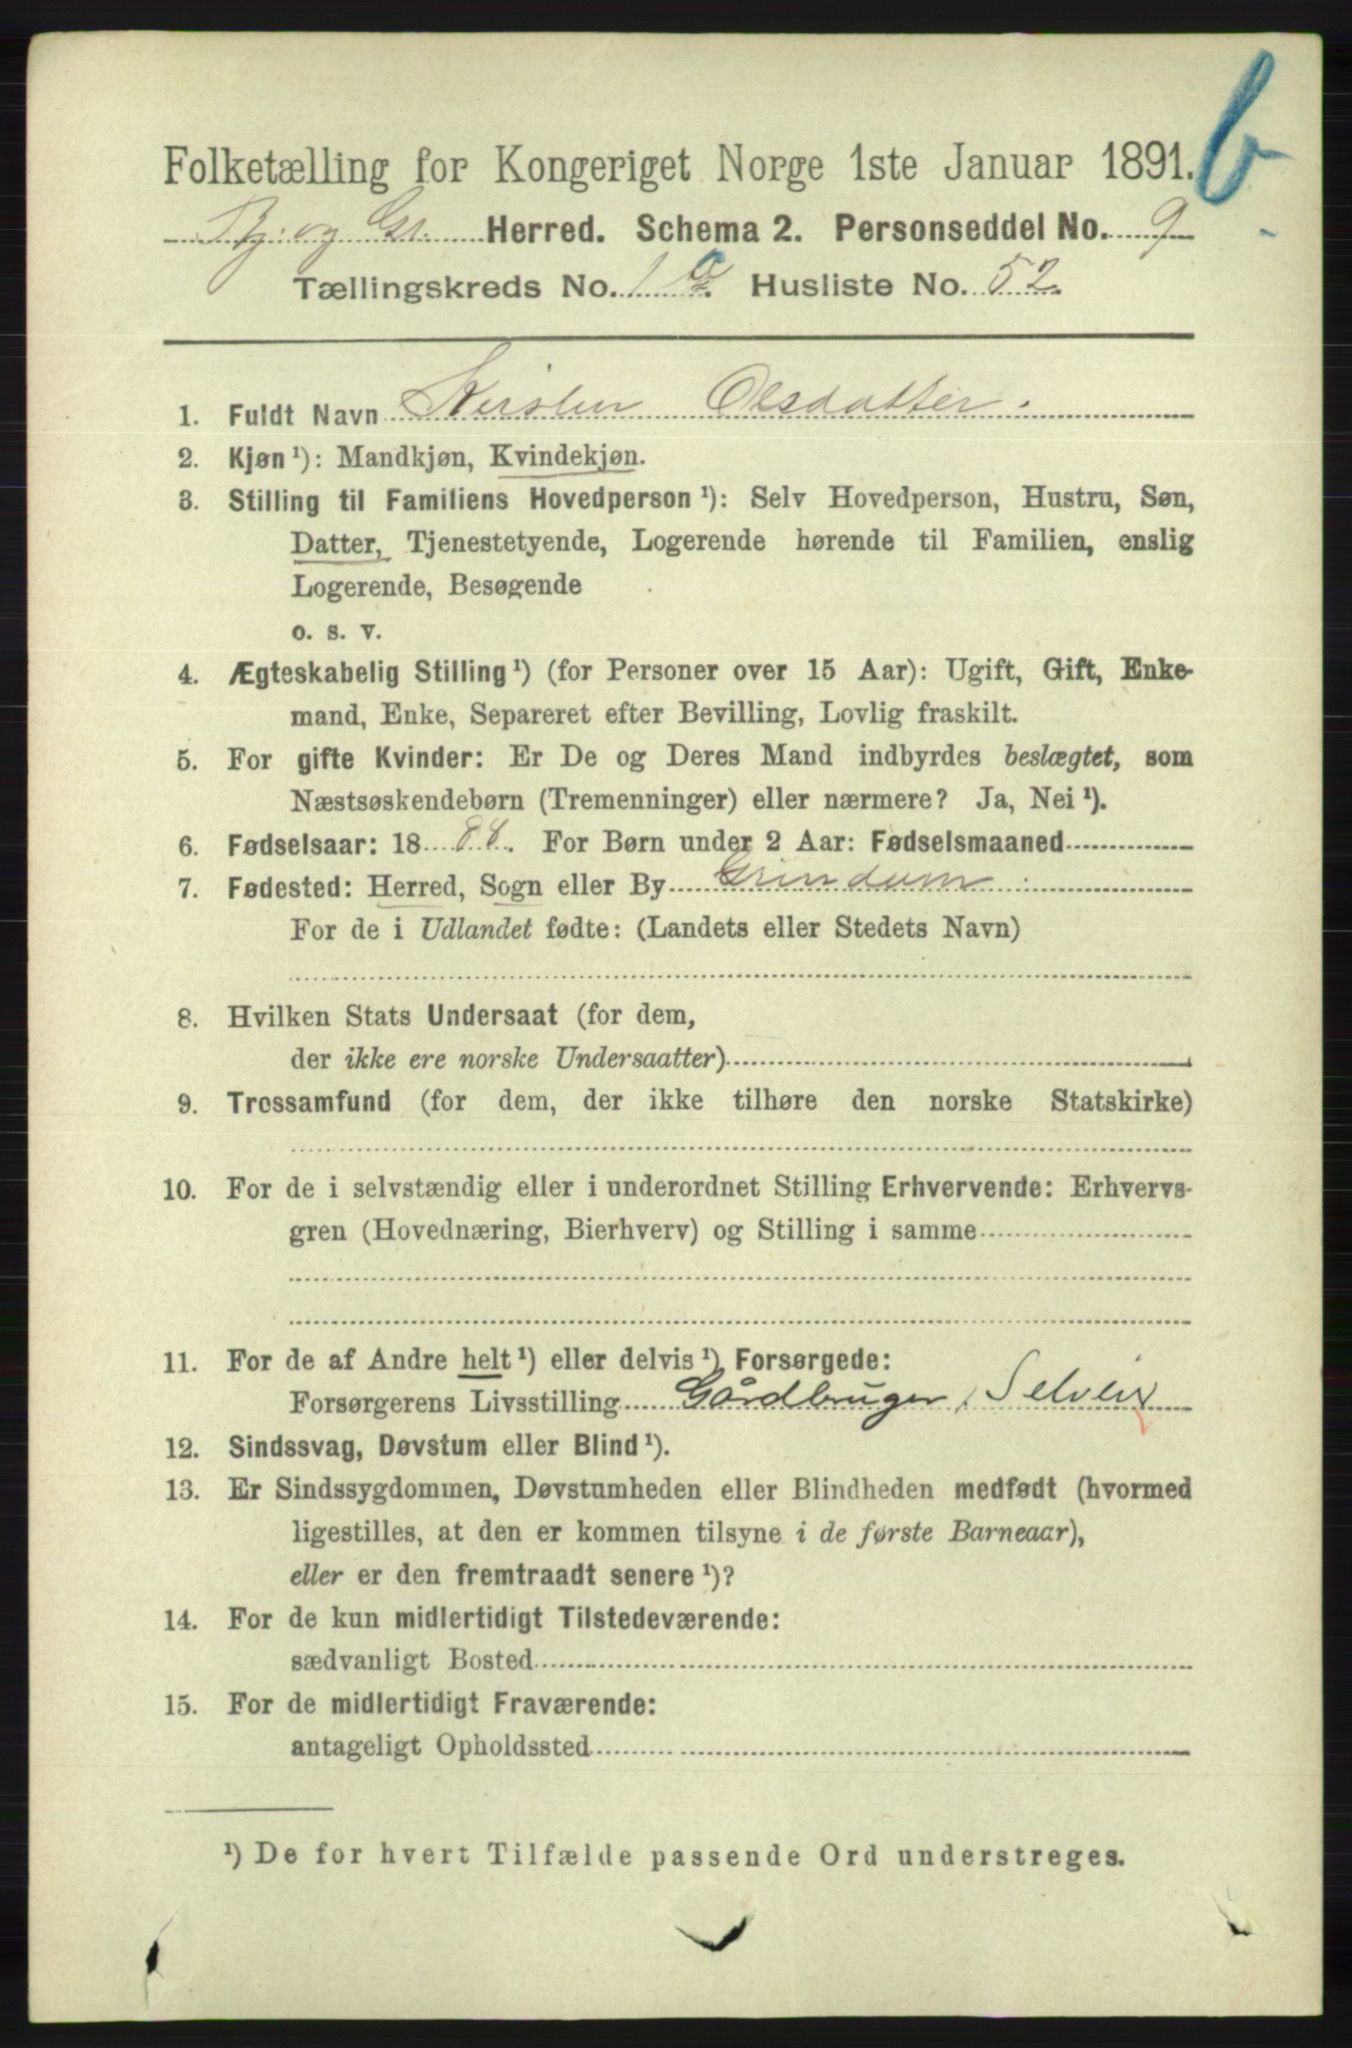 b
Folketælling for Kongeriget Norge 1ste Januar 1891.
Bj. og Gr. Herred. Schema 2. Personseddel No. 9
Tællingskreds No. 1 a. Husliste No. 52.
1. Fuldt Navn Kirsten Olsdatter.
2. Kjøn ¹): Mandkjøn, Kvindekjøn.
3. Stilling til Familiens Hovedperson ¹): Selv Hovedperson, Hustru, Søn,
Datter, Tjenestetyende, Logerende hørende til Familien, enslig
Logerende, Besøgende
o. s. v.
4. Ægteskabelig Stilling ¹) (for Personer over 15 Aar): Ugift, Gift, Enke-
mand, Enke, Separeret efter Bevilling, Lovlig fraskilt.
5. For gifte Kvinder: Er De og Deres Mand indbyrdes beslægtet, som
Næstsøskendebørn (Tremenninger) eller nærmere? Ja, Nei ¹).
6. Fødselsaar: 18 88. For Børn under 2 Aar: Fødselsmaaned
7. Fødested: Herred, Sogn eller By Grindum
For de i Udlandet fødte: (Landets eller Stedets Navn)
8. Hvilken Stats Undersaat (for dem,
der ikke ere norske Undersaatter)
9. Trossamfund (for dem, der ikke tilhøre den norske Statskirke)
10. For de i selvstændig eller i underordnet Stilling Erhvervende: Erhvervs-
gren (Hovednæring, Bierhverv) og Stilling i samme
11. For de af Andre helt ¹) eller delvis ¹) Forsørgede:
Forsørgerens Livsstilling Gårdbruger, Selveier
12. Sindssvag, Døvstum eller Blind ¹).
13. Er Sindssygdommen, Døvstumheden eller Blindheden medfødt (hvormed
ligestilles, at den er kommen tilsyne i de første Barneaar),
eller er den fremtraadt senere ¹)?
14. For de kun midlertidigt Tilstedeværende:
sædvanligt Bosted
15. For de midlertidigt Fraværende:
antageligt Opholdssted
¹) De for hvert Tilfælde passende Ord understreges.